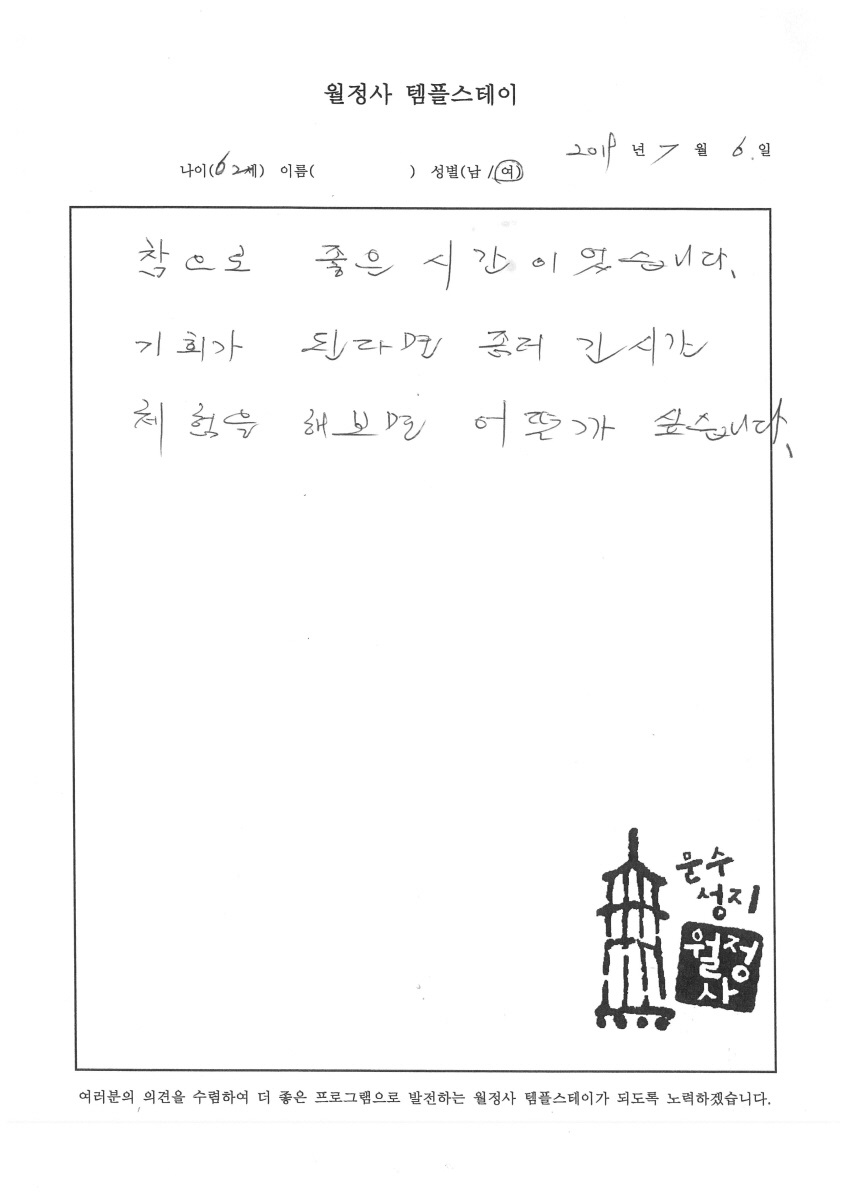 월정사 템플스테이
2019 년 7 월 6. 일
나이(62세) 이름( ) 성별(남 / 여)
참으로 좋은 시간이었습니다.
기회가 된다면 좀더 긴시간
체험을 해보면 어떤가 싶습니다.
문수
성지
월정
사
여러분의 의견을 수렴하여 더 좋은 프로그램으로 발전하는 월정사 템플스테이가 되도록 노력하겠습니다.